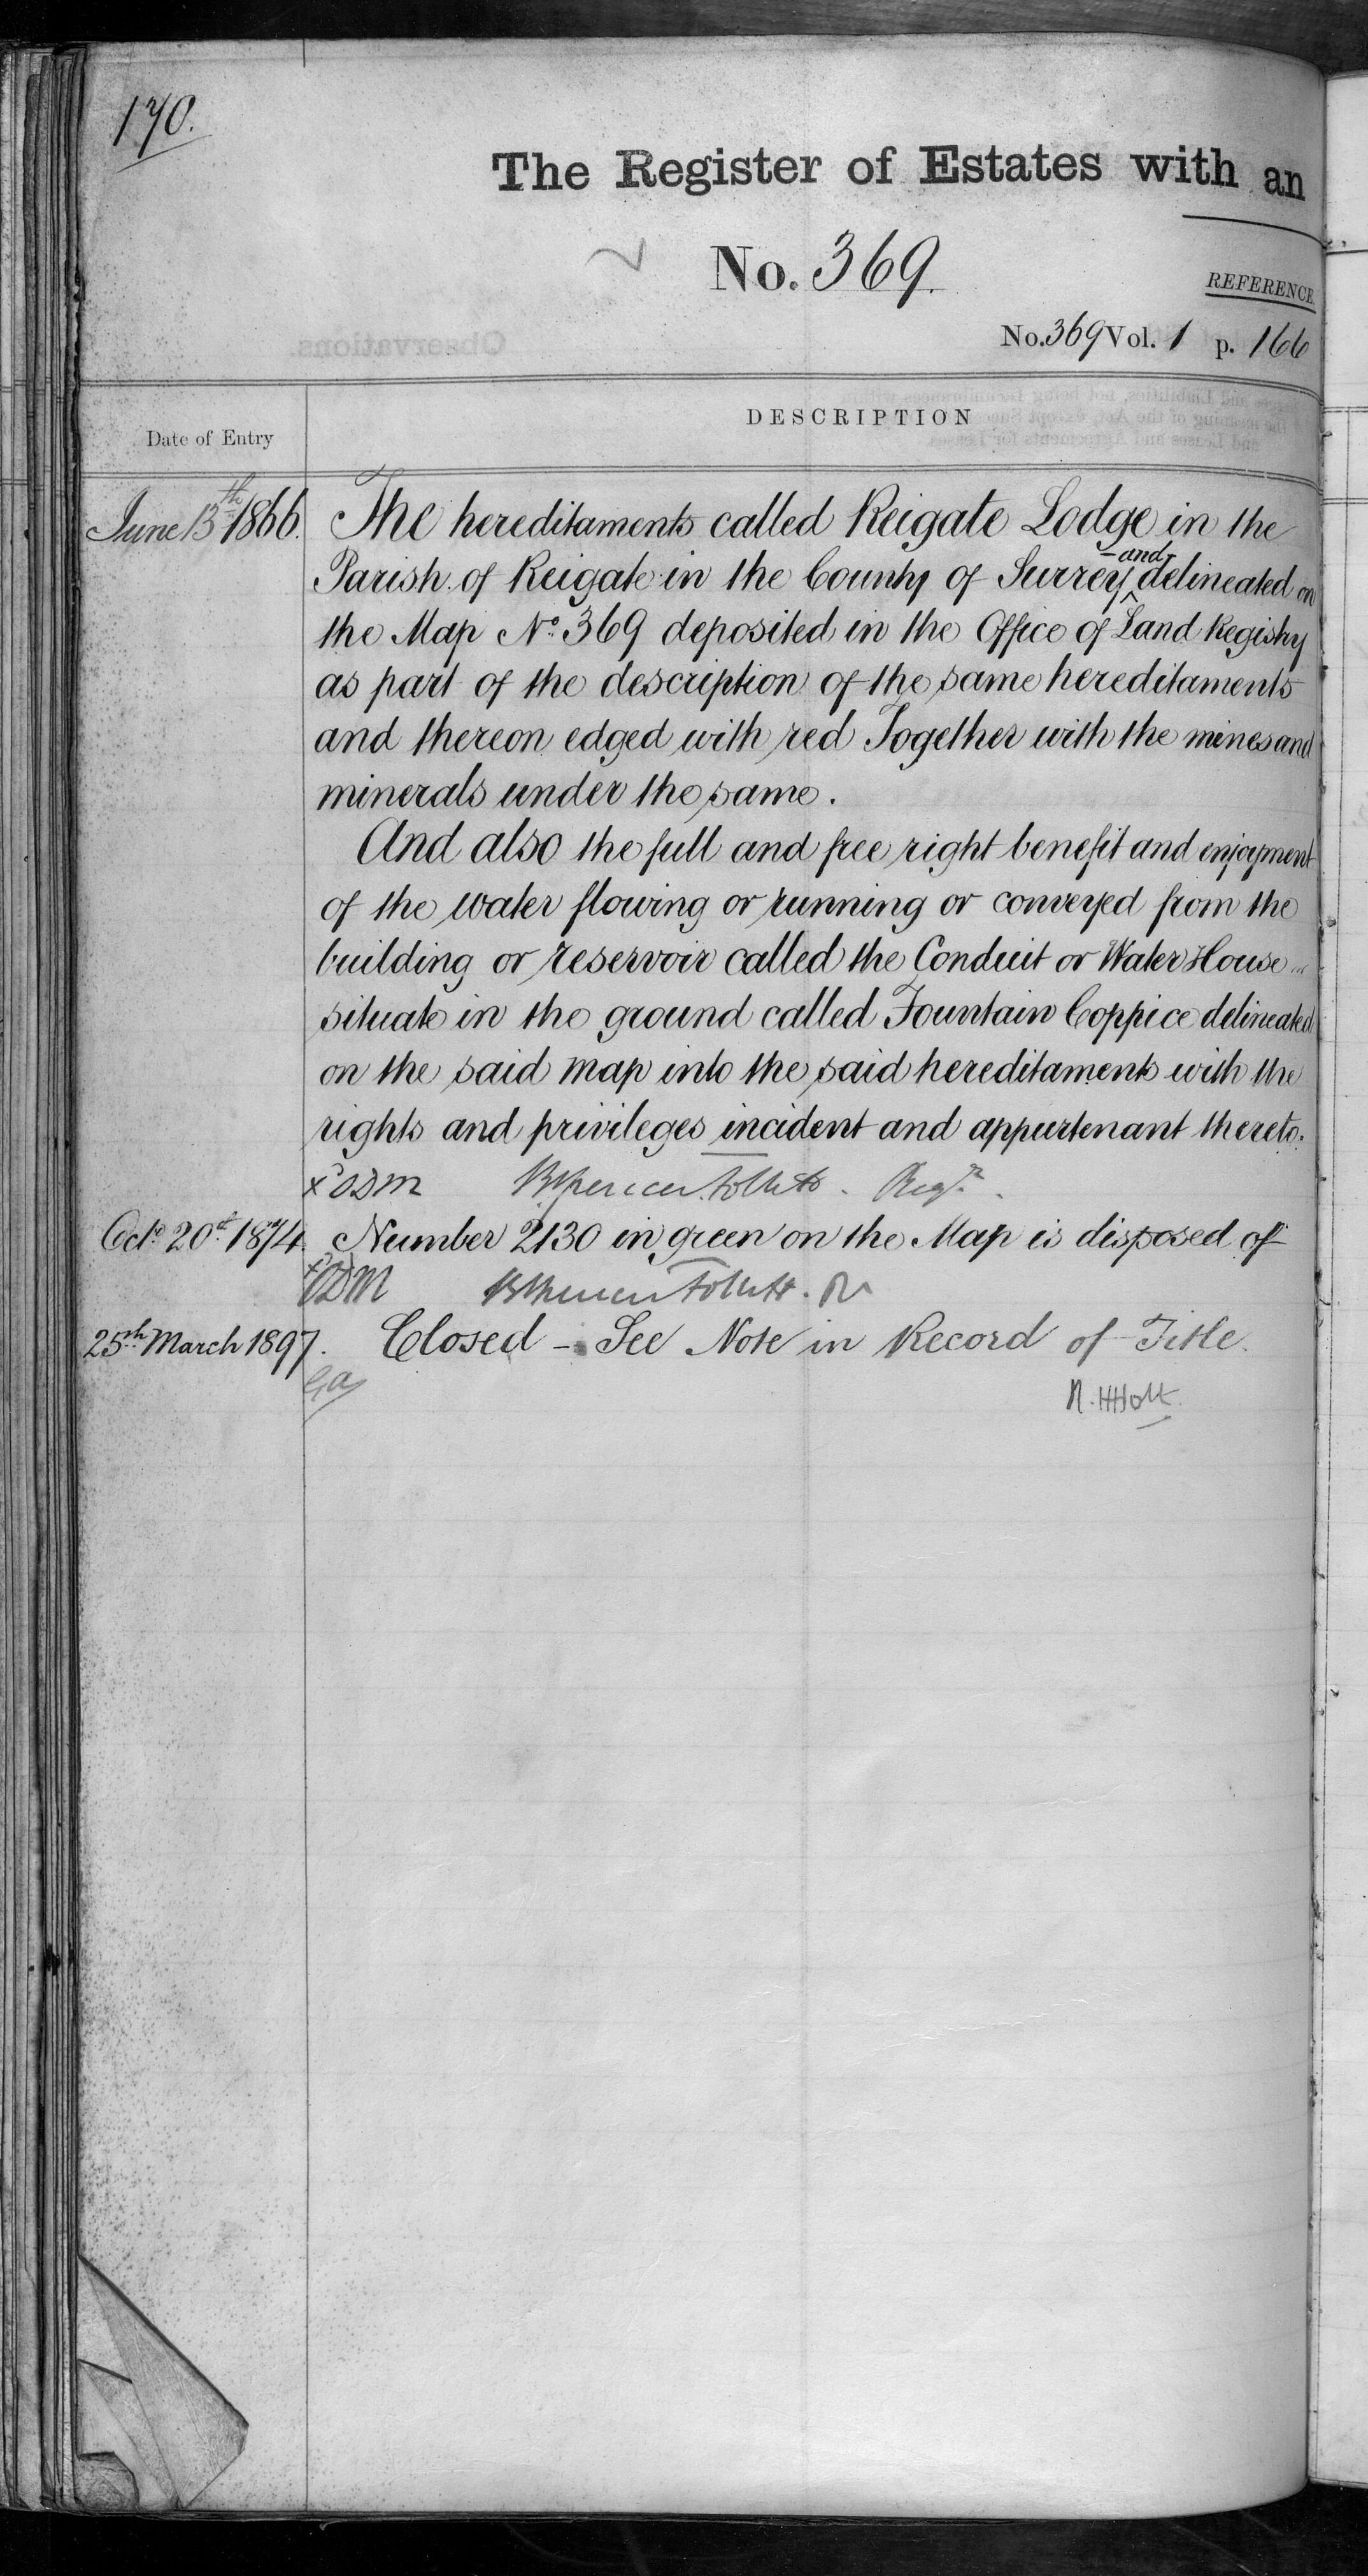 170.
The Register of Estates with an
No. 369.
REFERENCE
No. 369 Vol. 1 p. 166
Date of Entry
DESCRIPTION
June 13th 1866. The hereditaments called Reigate Lodge in the
Parish of Reigate in the County of Surrey and delineated on
the Map No. 369 deposited in the Office of Land Registry
as part of the description of the same hereditaments
and thereon edged with red Together with the mines and
minerals under the same.
And also the full and free right benefit and enjoyment
of the water flowing or running or conveyed from the
building or reservoir called the Conduit or Water House
situate in the ground called Fountain Coppice delineated
on the said map into the said hereditaments with the
rights and privileges incident and appurtenant thereto.
x ODM Brent Spencer Follett. Regr.
Octr. 20th 1874. Number 2130 in green on the Map is disposed of
x ODM Follett. R
25th March 1897. Closed - See Note in Record of Title.
R. H Holt